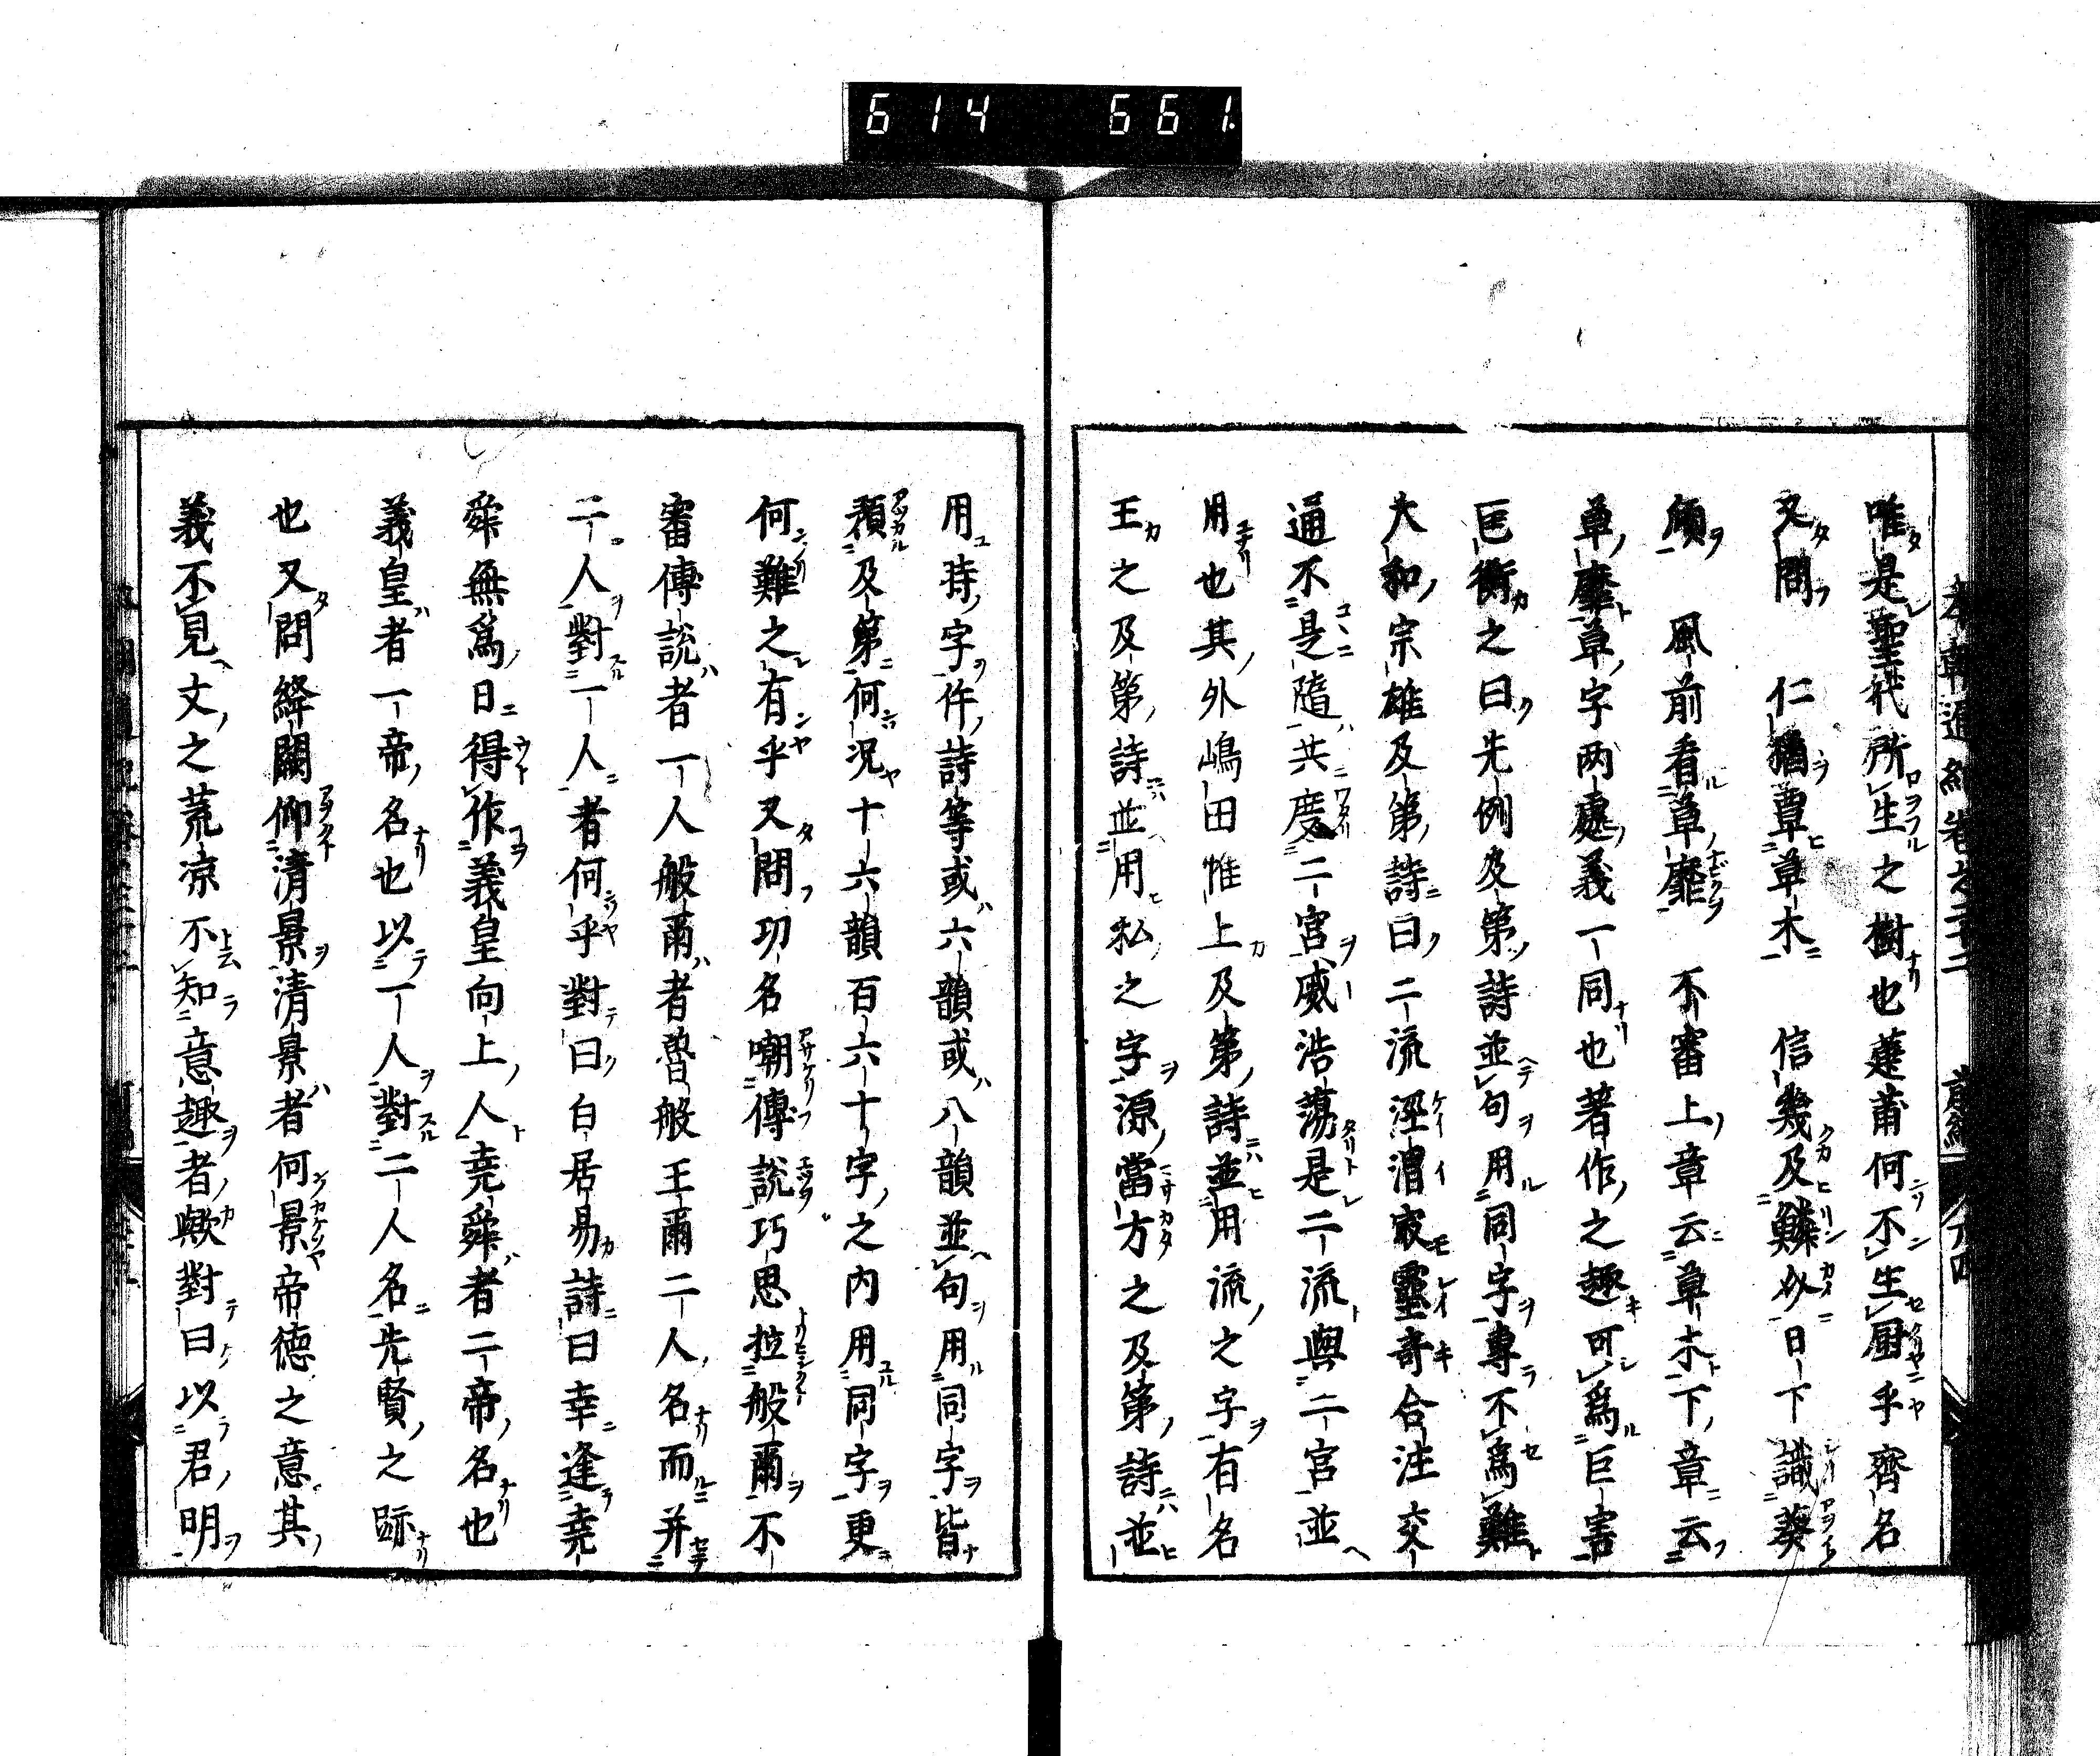 614 661
唯是聖代所生之樹也蓮莆何不生厨乎齊名
又問 仁猶覃草木 信幾及鱗介日下識葵
傾 風前看草靡 不審上章云草木下章云
草靡草字两處義一同也著作之趣可為巨害
巨衡之曰先例及第詩並句用同字專不為難
大和宗雄及第詩曰二流涇渭寂靈奇合注交
通不是隨共度二宮威浩蕩是二流與二宮並
用也其外嶋田惟上及第詩並用流之字有名
王之及第詩並用私之字源當方之及第詩並
用持字件詩等或六韻或八韻並句用同字皆
預及第何況十六韻百六十字之内用同字更
何難之有乎又問功名嘲傳說巧思拉般爾不
審傳說者一人般爾者魯般王爾二人名而并
二人對一人者何乎對曰白居易詩曰幸逢堯
舜無爲日得作義皇向上人堯舜者二帝名也
義皇者一帝名也以一人對二人名先賢之跡
也又問絳闕仰清景清景者何景帝德之意其
義不見文之荒凉不知意趣者歟對曰以君明